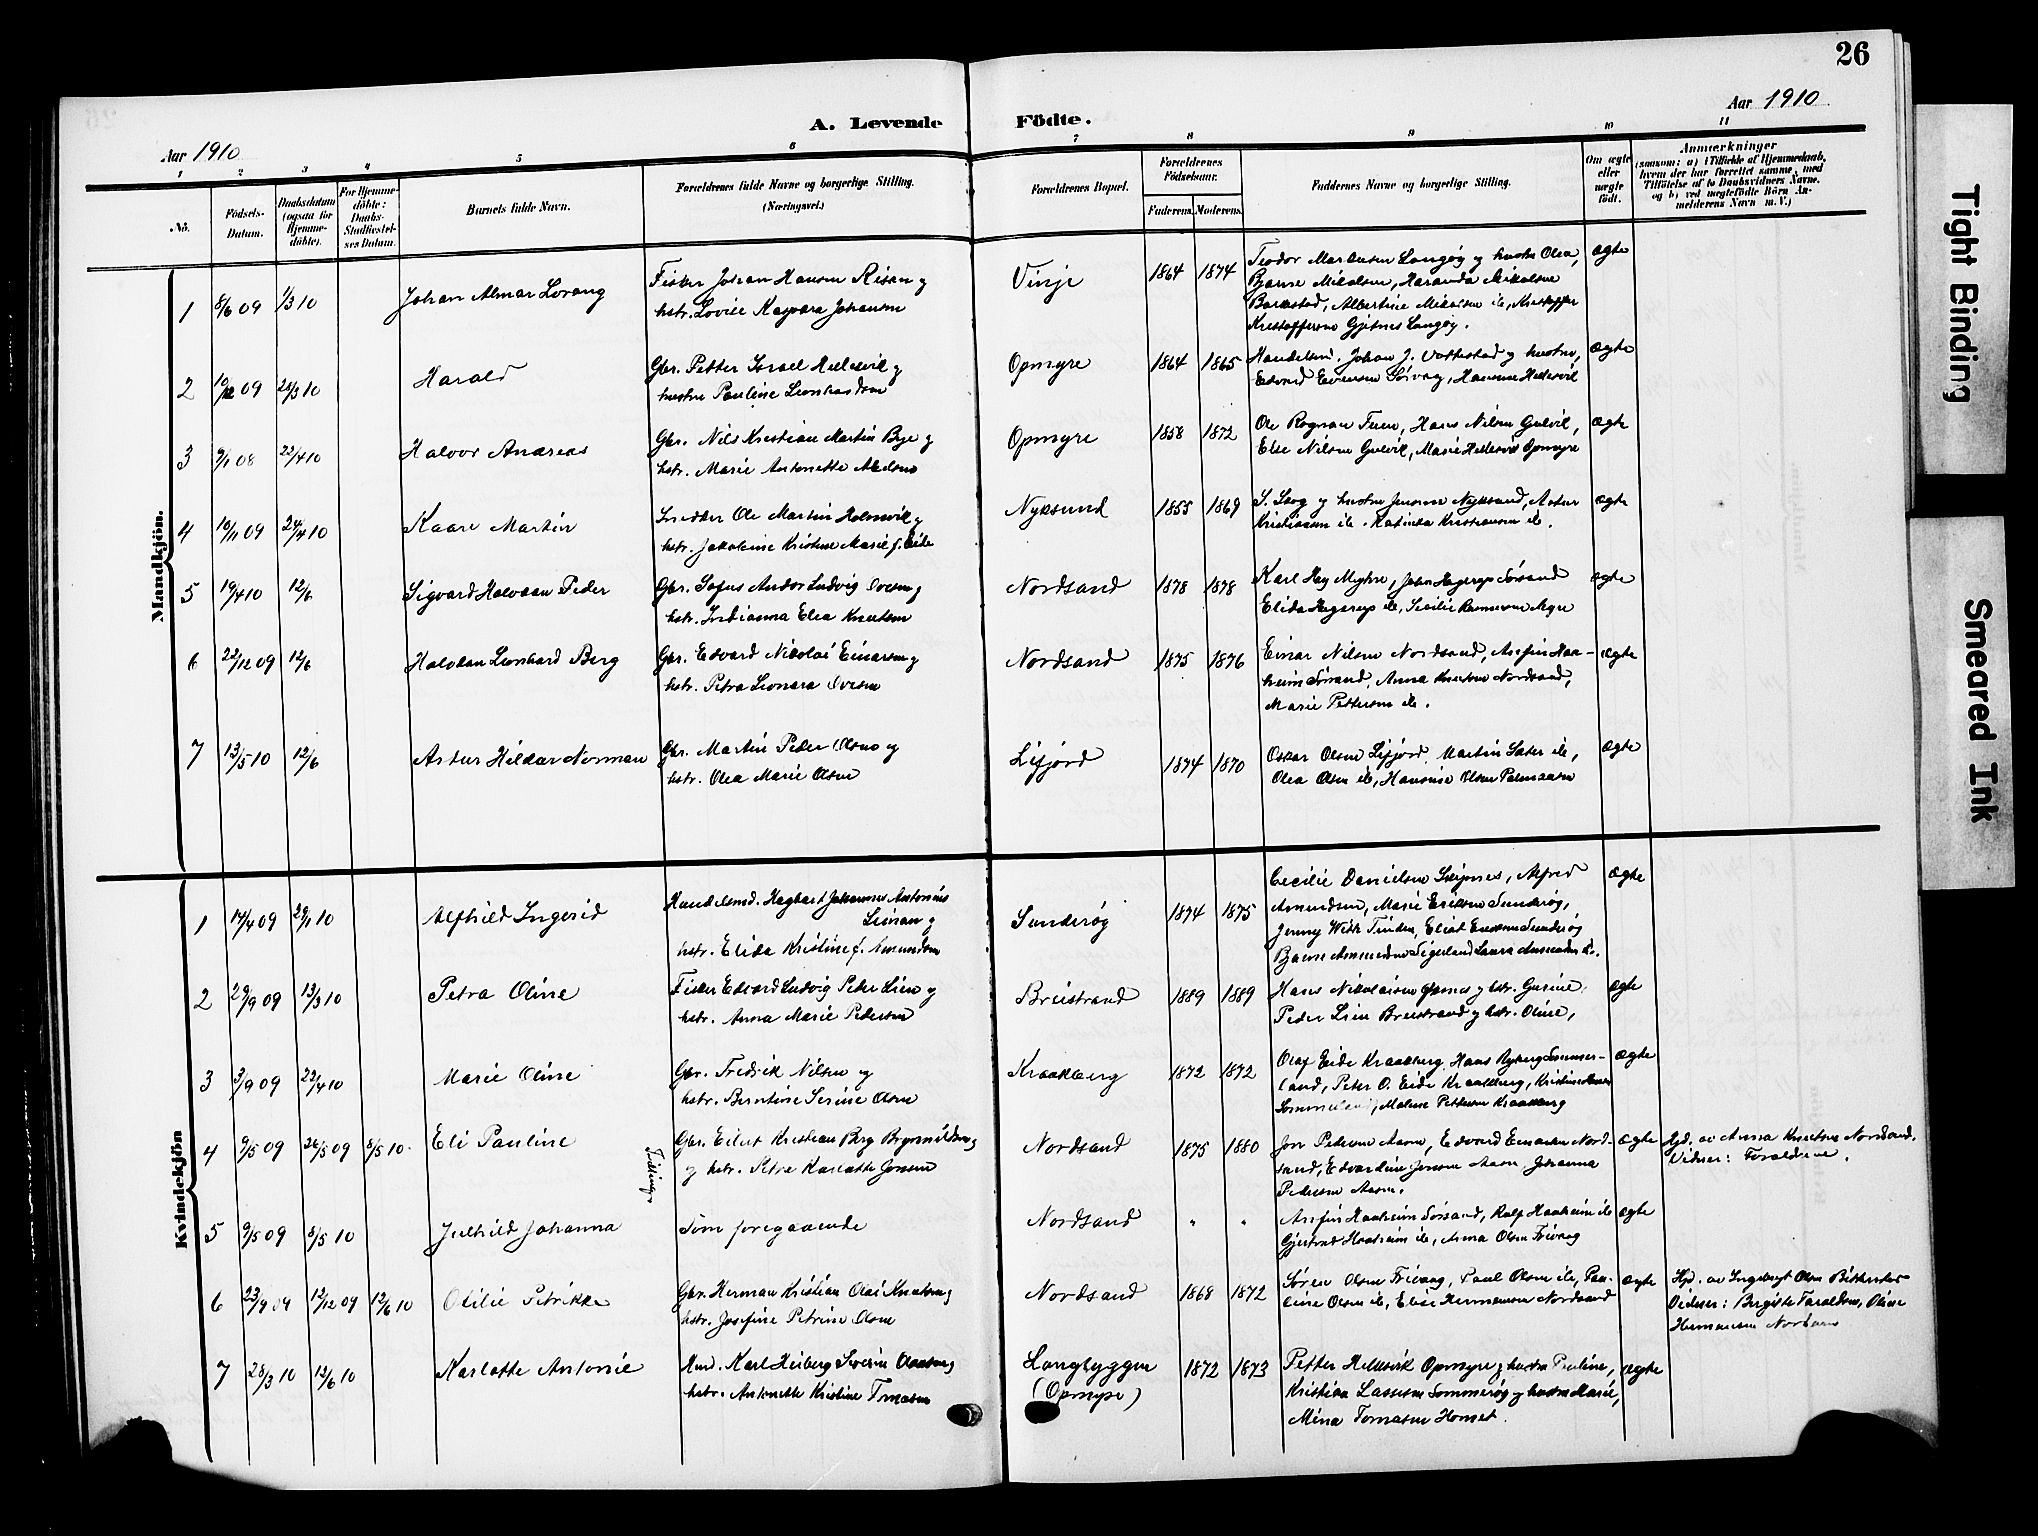 26
A. Levende Födte.
Aar 1910
Aar 1910
1 2 3 4 5 6 7 8 9 10 11
No.
Födsels-Datum.
Daabsdatum (ogsaa for Hjemmedöbte).
For Hjemmedöbte: Daabs-Stadfæstelses Datum.
Barnets fulde Navn.
Forældrenes fulde Navne og borgerlige Stilling. (Næringsvei.)
Forældrenes Bopæl.
Forældrenes Födselsaar.
Faderens. Moderens.
Faddernes Navne og borgerlige Stilling.
Om ægte eller uægte födt.
Anmærkninger
(saasom: a) i Tilfælde af Hjemmedaab, hvem der har forrettet samme, med Tilföielse af to Daabsvidners Navne, og b) ved uægtefödte Börn Anmelderens Navn m. V.)
Mandkjön.
1 8/6 09 1/3 10 Johan Almar Lorang
Fisker Johan Hansen Risan og
hstr. Lovise Kaspara Johansen
Vinje 1864 1874
Teodor Martinsen Langøy og hustru Olea,
Bjarne Mikalsen, Haranda Mikalsen
Barkestad, Albertine Mikalsen ib, Kristoffer
Kristoffersen Gjetnes Langøy.
ægte
2 10/12 09 28/3 10 Harald
Gbr. Petter Israel Hellesvik og
hustru Pauline
Opmyre 1864 1865
Handelsm. Johan J. Vottestad og hustru,
Edvard Evensen Sørvaag, Hansine Hellesvik
ægte
3 9/1 08 23/4 10 Halvor Andreas
Gbr. Nils Kristian Martin Bye og
hstr. Marie Antonette
Opmyre 1858 1872
Ole Rognan Tuen, Hans Nilsen Gulvik,
Else Nilsen Gulvik, Marie Hellesvik Opmyre
ægte
4 10/11 09 24/4 10 Kaare Martin
Ole Martin Holmvik og
hstr. Jakobine Kristine Marie f. Eide
Nyksund 1855 1869
S. Skog og hustru Jensine Nyksund, Artur
Kristiansen ib. Katinka Kristiansen ib.
ægte
5 19/4 10 12/6 Sigvard Halvdan Peder
Gbr. Sofus Andor Ludvig Ovesen og
hstr. Indianna Elea Knutsen
Nordsand 1878 1878
Karl Hay Myhre, John Hagerup Sørsand
Elida Hagerup ib, Sesilie Rasmussen Myre
ægte
6 22/12 09 12/6 Halvdan Leonhard Berg
Gbr. Edvard Nikolai Einarsen og
hstr. Petra Leonara Ovesen
Nordsand 1875 1876
Einar Nilsen Nordsand, Arnfin Haa-
heim Sørsand, Anna Knutsen Nordsand,
Marie Pettersen ib.
ægte
7 13/5 10 12/6 Artur Hildar Norman
Gbr. Martin Peder Olsen og
hstr. Olea Marie Olsen
Lifjord 1874 1870
Oskar Olsen Lifjord, Martin Sæter ib,
Olea Olsen ib, Hansine Olsen
ægte
Kvindekjön
1 14/4 09 29/1 10 Alfhild Ingerid
Handelsmd. Hagbart Johannes Antonius
og
hstr. Elida Kristine f. Amundsen
Sunderøy 1874 1875
Cecilie Danielsen Skipnes, Alfred
Amundsen, Marie Eriksen Sunderøy,
Jenny With Tinden, Eliot Eriksen Sunderøy
Bjarne Amundsen Laura Amundsen ib.
ægte
2 29/9 09 13/3 10 Petra Oline
Fisker Edvard Ludvig Peder Lien og
hstr. Anna Marie Pedersen
Breistrand 1889 1889
Hans Nikolaisen og hstr. Gurine,
Peder Lien Breistrand og hstr. Oline,
ægte
3 3/9 09 23/4 10 Marie Oline
Gbr. Fredrik Nilsen og
hstr. Berntine Serine Olsen
Kraakberg 1872 1872
Olaf Eide Kraakberg, Hans Nyberg Sommer-
land, Peter O. Eide Kraakberg, Kristine
Malene Pettersen Kraakberg
ægte
Tvilling
4 9/5 09 26/5 09 8/5 10. Eli Pauline
Gbr. Eilert Kristian Berg Brynnildsen
og hstr. Petra Karlotte Jensen
Nordsand 1875 1880
Jon Pedersen Aasen, Edvard Einarsen Nord-
sand, Edvardine Jensen Aasen, Johanna
Pedersen Aasen.
ægte
Hjd. av Anna Knutsen Nordsand.
Vidner: Forældrene.
5 9/5 09 8/5 10 Julhild Johanna
Som foregaaende
Nordsand " "
Arnfin Haaheim Sørsand, Ralf Haaheim ib
Gjertrud Haaheim ib, Anna Olsen Frivaag
ægte
6 23/9 09 12/12 09 12/6 10 Otilie Petrikke
Gbr. Herman Kristian Olai Knutsen og
hstr. Josefine Petrine Olsen
Nordsand 1868 1872
Søren Olsen Frivaag, Paul Olsen ib, Pau-
line Olsen ib, Elise Hermansen Nordsand
ægte
Hjd. av Ingebrigt Olsen
Vidner: Bergitte Taraldsen, Oline
Hermansen Nordsand
7 28/3 10 12/6 10 Karlotte Antonie
Hmd. Karl Heiberg Severin Olausen og
hstr. Antonette Kristine Tomasen
Langbyggen
(Opmyre)
1872 1873
Petter Hellesvik Opmyre og hustru Pauline,
Kristian Lassesen Sommerøy og hustru Marie,
Mina Tomasen Homset.
ægte
Tight Binding
Smeared Ink